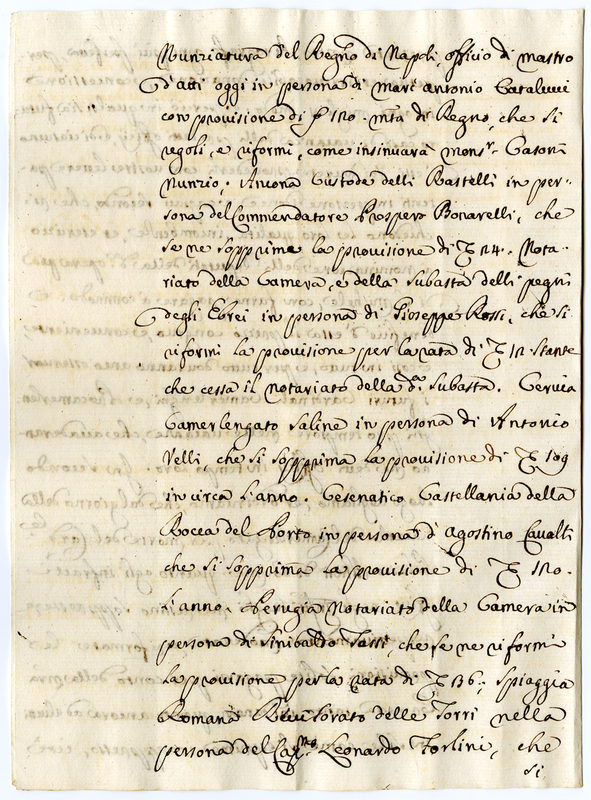 Nunziatura del Regno di Napoli, officio di mastro
d'atti oggi in persona di Marc'antonio
con provisione di 120 mta di Regno, che si
regoli, e riformi, come insinuarà Monsr. Casoni
Nunzio. Ancona Custode delli Rastelli in per-
sona del Commendatore Prospero Bonarelli, che
se ne sopprima la provisione di 24. Nota-
riato della Camera, e della Subasta delli pegni
degli Ebrei in persona di Gioseppe Rossi, che si
riformi la provisione per la rata di 12 stante
che cessa il notariato della da. subasta. Cervia
Camerlengato Saline in persona di Antonio
Velli, che si sopprima la provisione di 109
in circa l'anno. Cesenatico Castellania della
Rocca del Porto in persona d'Agostino Cavalli
che si sopprima la provisione di 120.
l'anno. Perugia Notariato della Camera in
persona di Sinibaldo Tassi, che se ne riformi
la provisione per la rata di 36; Spiaggia
Romana delle Torri nella
persona del Leonardo Torlini, che
si